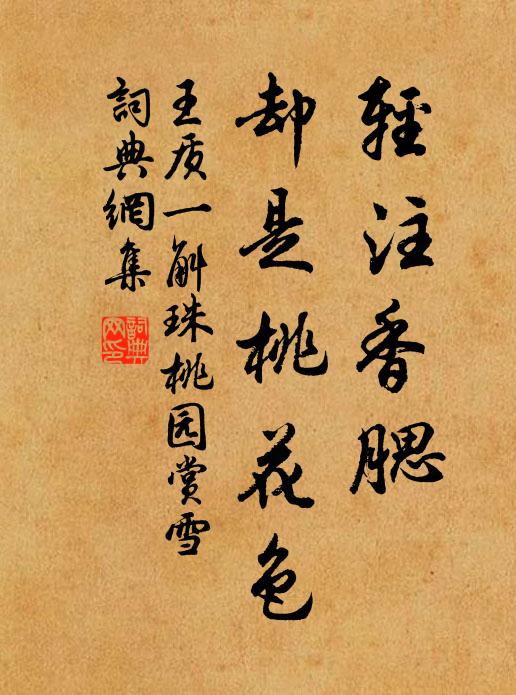 輕注香腮
却是桃花色
王质一斛珠桃园赏雪
詞典網集
詞典
网印